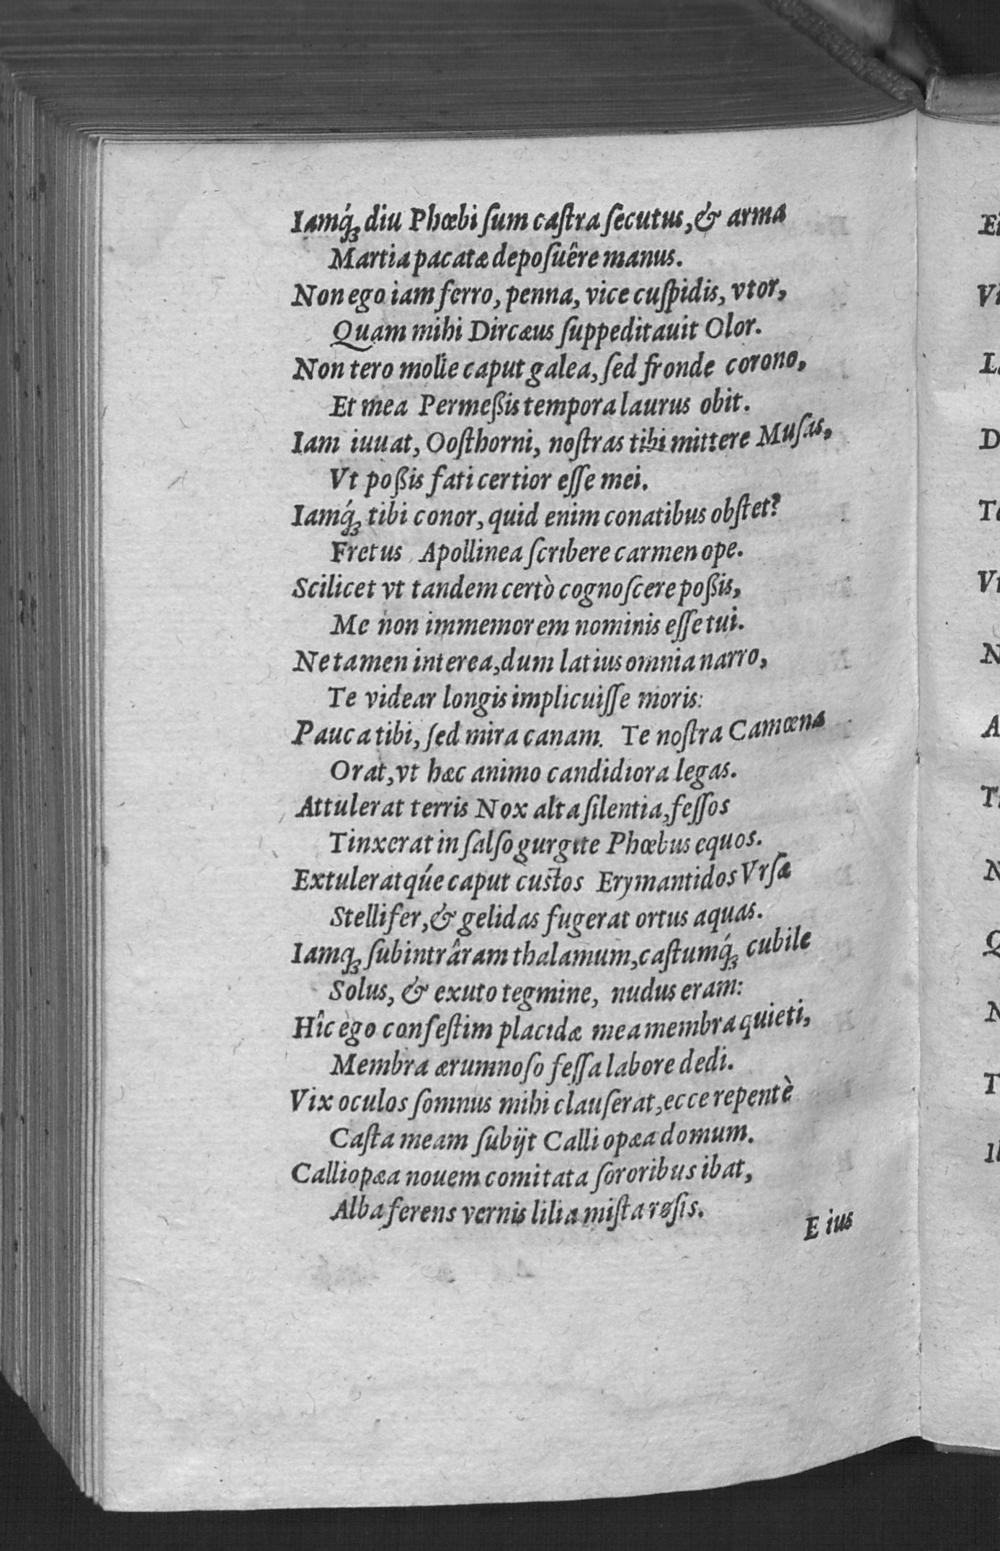 Iamq́ꝫ diu Phœbi ſum caſtra ſecutus, & arma
Martia pacatæ depoſuêre manus.
Non ego iam ferro, penna, vice cuſpidis, vtor,
Quam mihi Dircæus ſuppeditauit Olor.
Non tero molle caput galea, ſed fronde corono,
Et mea Permeßis tempora laurus obit.
Iam iuuat, Ooſthorni, noſtras tibi mittere Muſas,
Vt poßis fati certior eſſe mei.
Iamq́ꝫ tibi conor, quid enim conatibus obſtet?
Fretus Apollinea ſcribere carmen ope.
Scilicet vt tandem certò cognoſcere poßis,
Me non immemorem nominis eſſe tui.
Ne tamen interea, dum latius omnia narro,
Te videar longis implicuiſſe moris:
Pauca tibi, ſed mira canam. Te noſtra Camœna
Orat, vt hæc animo candidiora legas.
Attulerat terris Nox alta ſilentia, feſſos
Tinxerat in ſalſo gurgite Phœbus equos.
Extuleratq́ue caput cuſtos Erymantidos Vrſæ
Stellifer, & gelidas fugerat ortus aquas.
Iamqꝫ ſubintrâram thalamum, caſtumq́ꝫ cubile
Solus, & exuto tegmine, nudus eram:
Hîc ego confeſtim placidæ mea membra quieti,
Membra ærumnoſo feſſa labore dedi.
Vix oculos ſomnus mihi clauſerat, ecce repentè
Caſta meam ſubijt Calliopæa domum.
Calliopæa nouem comitata ſororibus ibat,
Alba ferens vernis lilia miſta roſis.
Eius